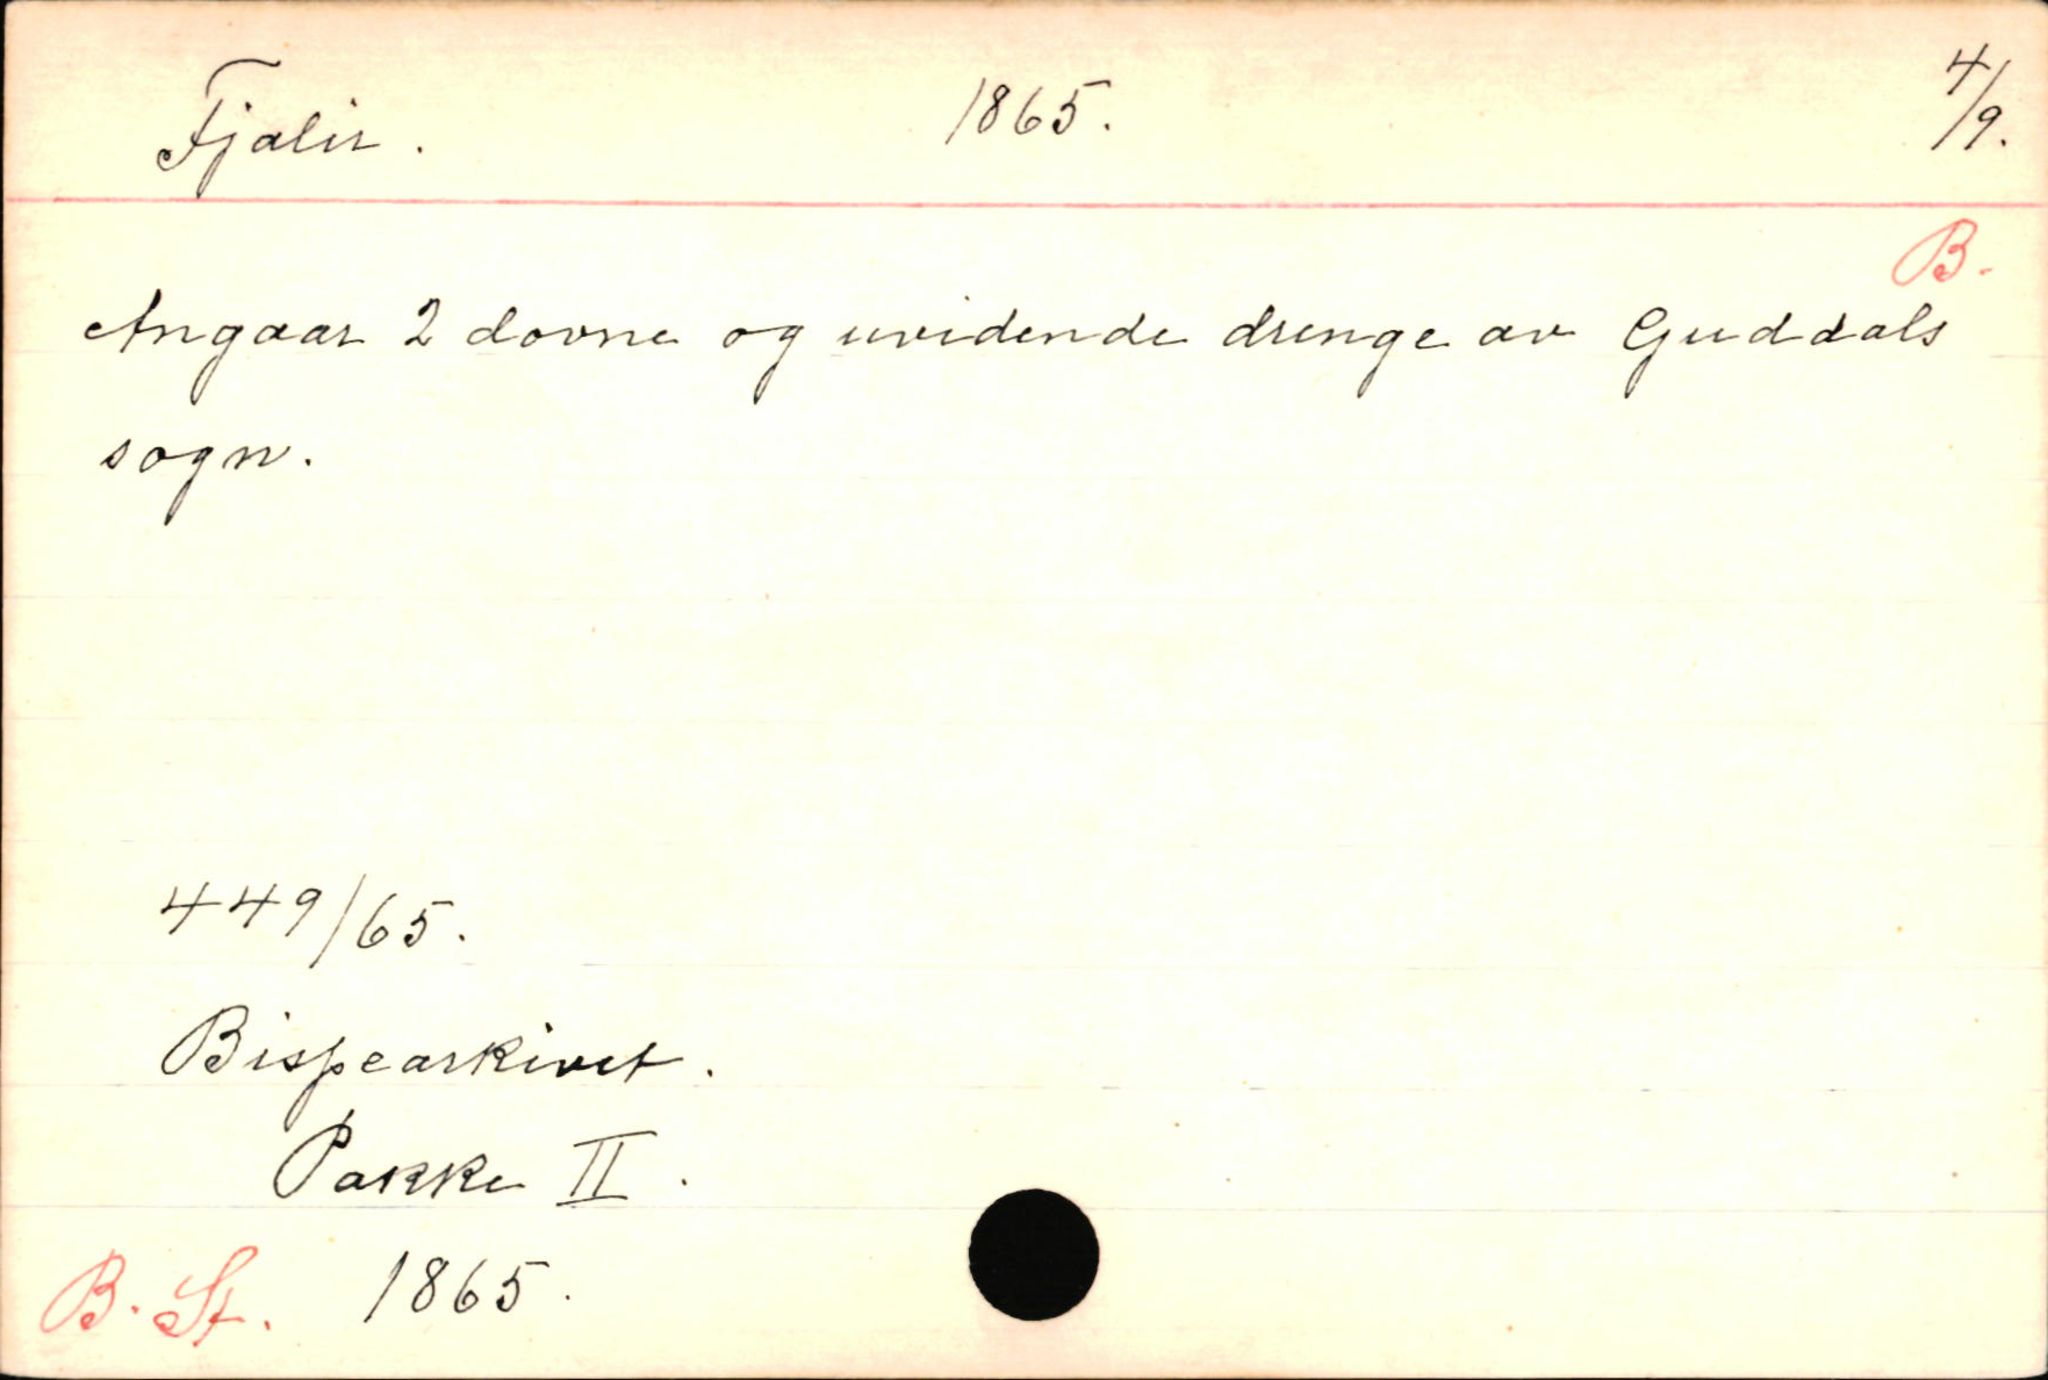 Fjalir. 1865. 4/9.
B.
Angaar 2 dovne og uvidende drenge av Guddals
sogn.
449/65.
Bispearkivet.
Pakke II.
B. St. 1865.